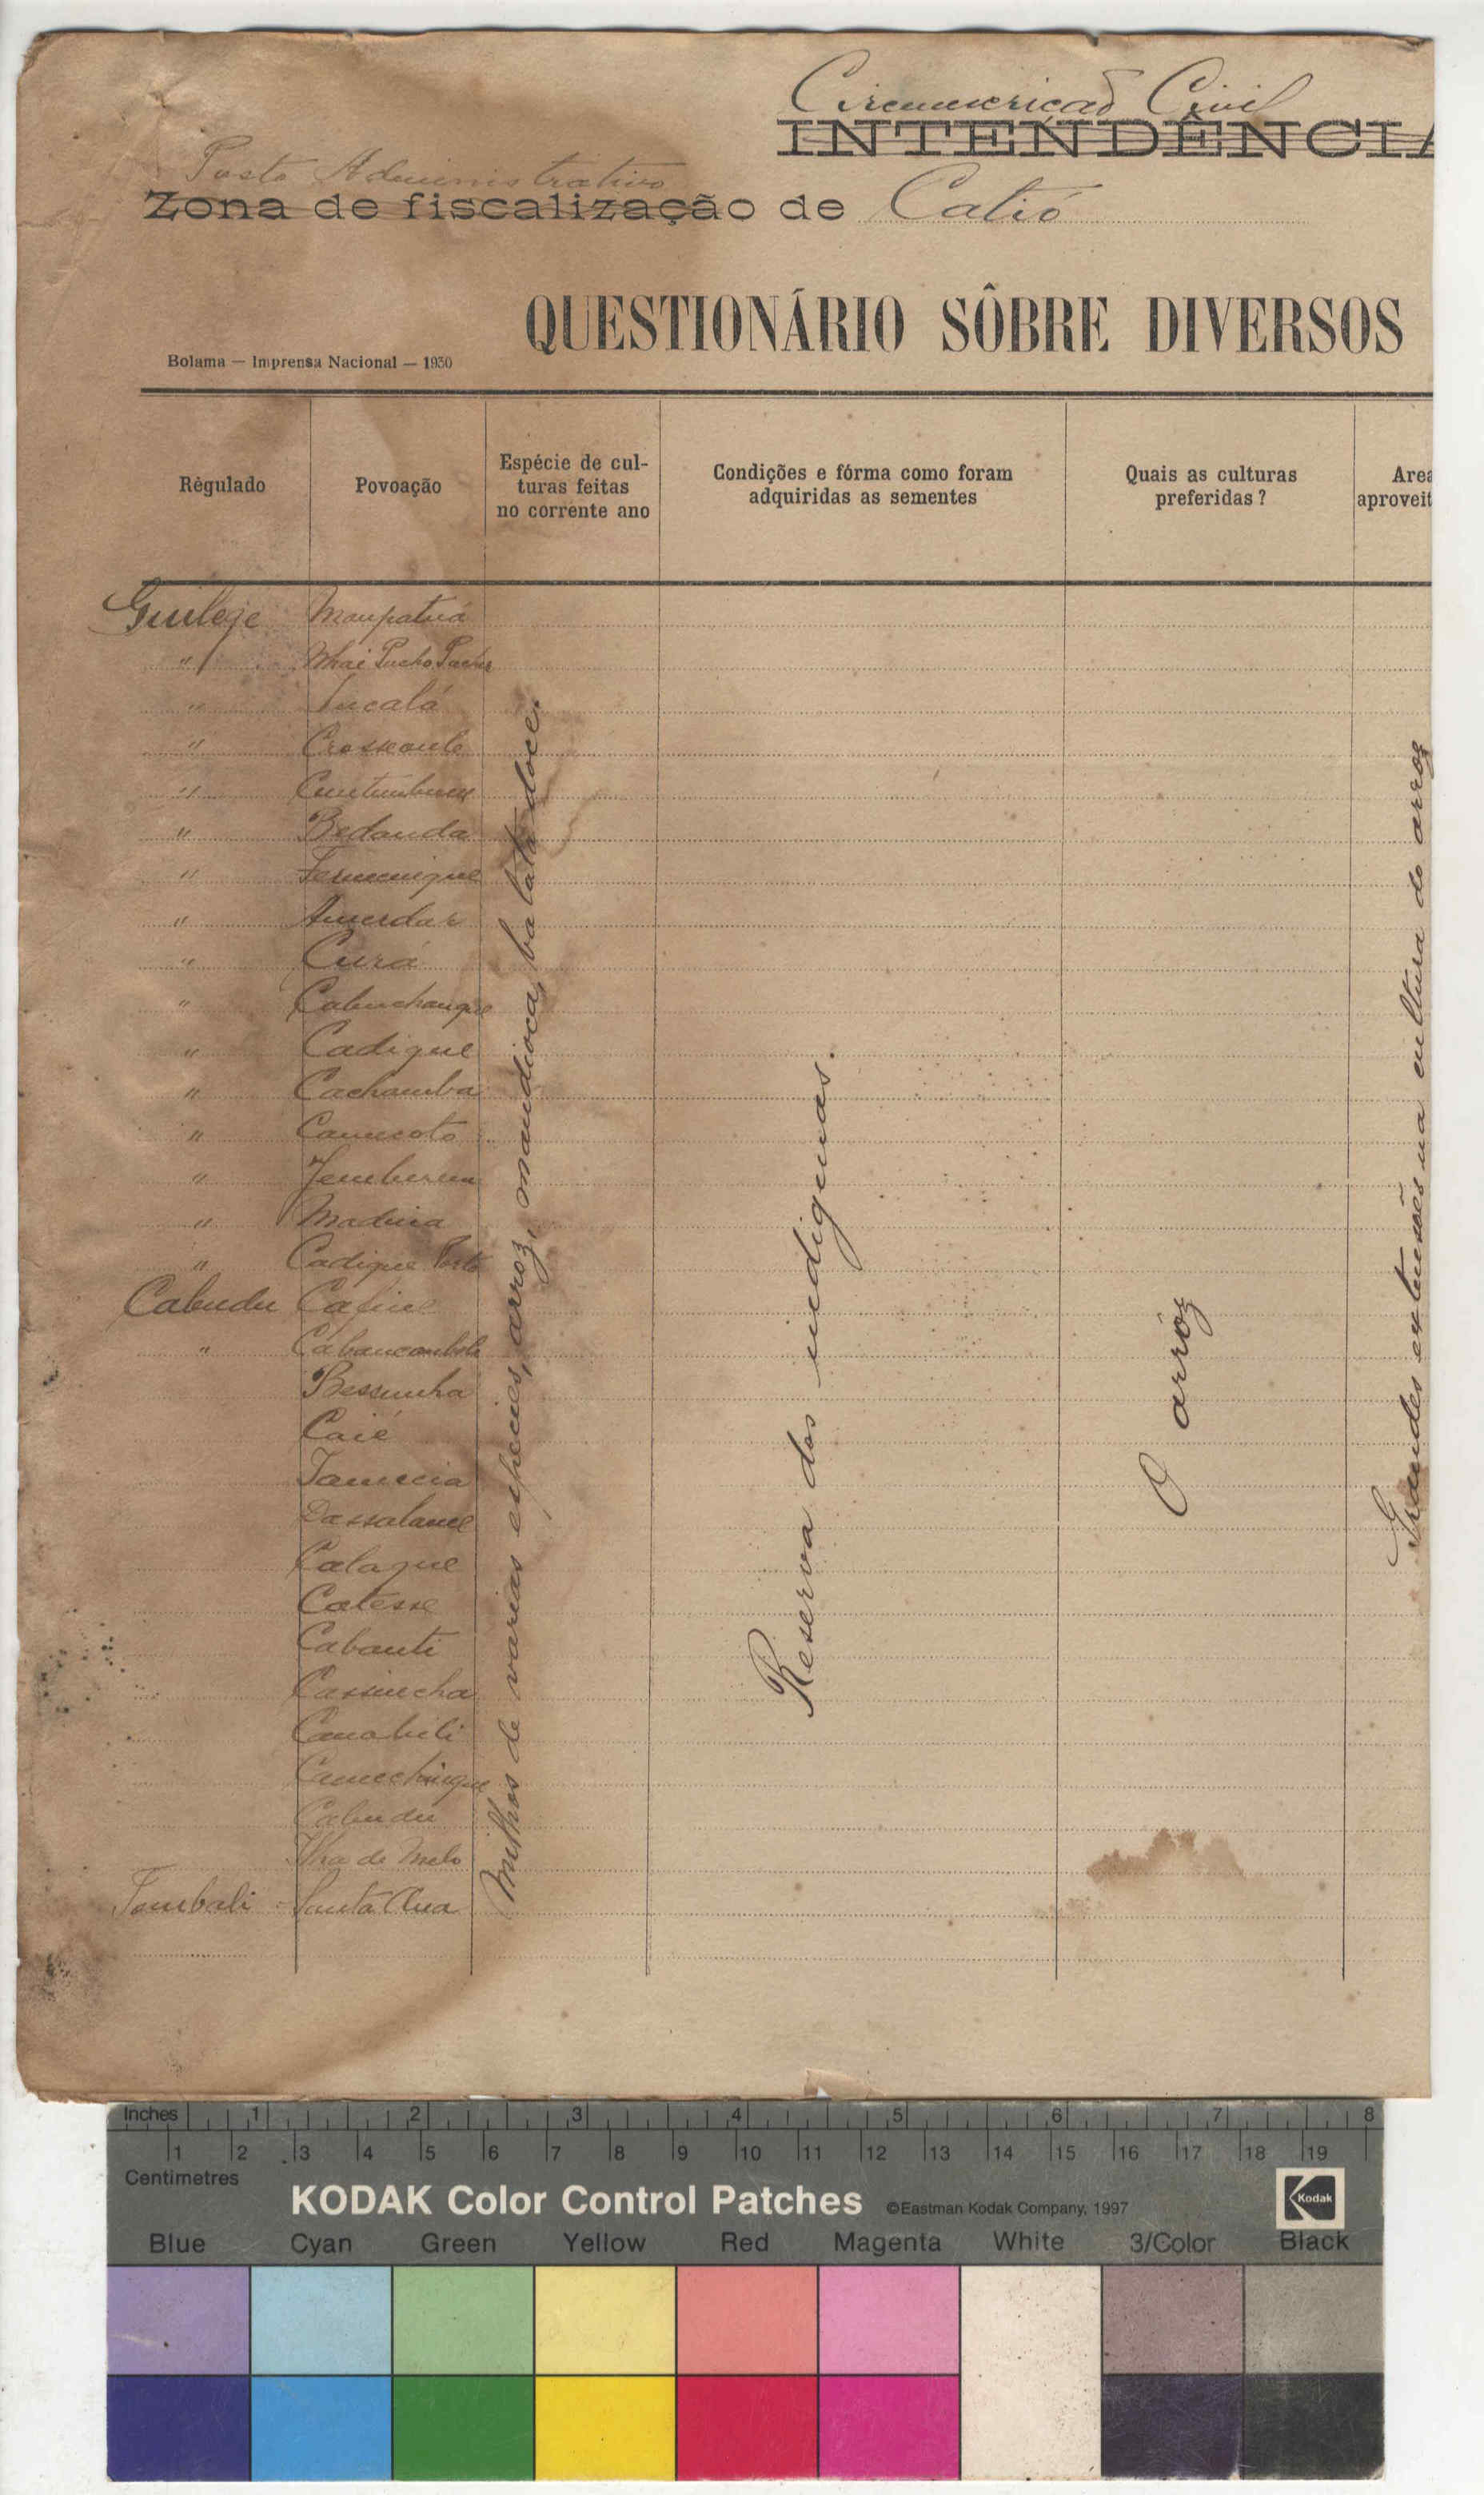 Circunscrição Civil
INTENDÊNCIA
Posto Administrativo
Zona de fiscalização de Catió
QUESTIONÁRIO SÔBRE DIVERSOS
Bolama — Imprensa Nacional — 1930
Règulado
Povoação
Espécie de cul-
turas feitas
no corrente ano
Condições e fórma como foram
adquiridas as sementes
Quais as culturas
preferidas?
Area
aproveit
Guileje Mampatuá
"
" Incalá
"
"
" Bedanda
"
" Amerdar
" Curá
" Cabuchanque
" Cadique
" Cachamba
" Camecoto
" Jemberem
" Madina
" Cadique Porto
Cabudu Cafine
" Cabancombole
Bessunha
Caié
Tamecia
Dassalame
Calaque
Catesse
Cabanti
Cassincha
Canabili
Camechingue
Cabudu
Ilha de Melo
Tombali - Santa Ana
Milhos de varias especies, arroz, mandioca, batata doce.
Reserva dos indigenas.
O arroz
Grandes extensões na cultura do arroz
Inches 1 2 3 4 5 6 7 8
1 2 3 4 5 6 7 8 9 10 11 12 13 14 15 16 17 18 19
Centimetres
KODAK Color Control Patches ©Eastman Kodak Company, 1997 Kodak
Blue Cyan Green Yellow Red Magenta White 3/Color Black